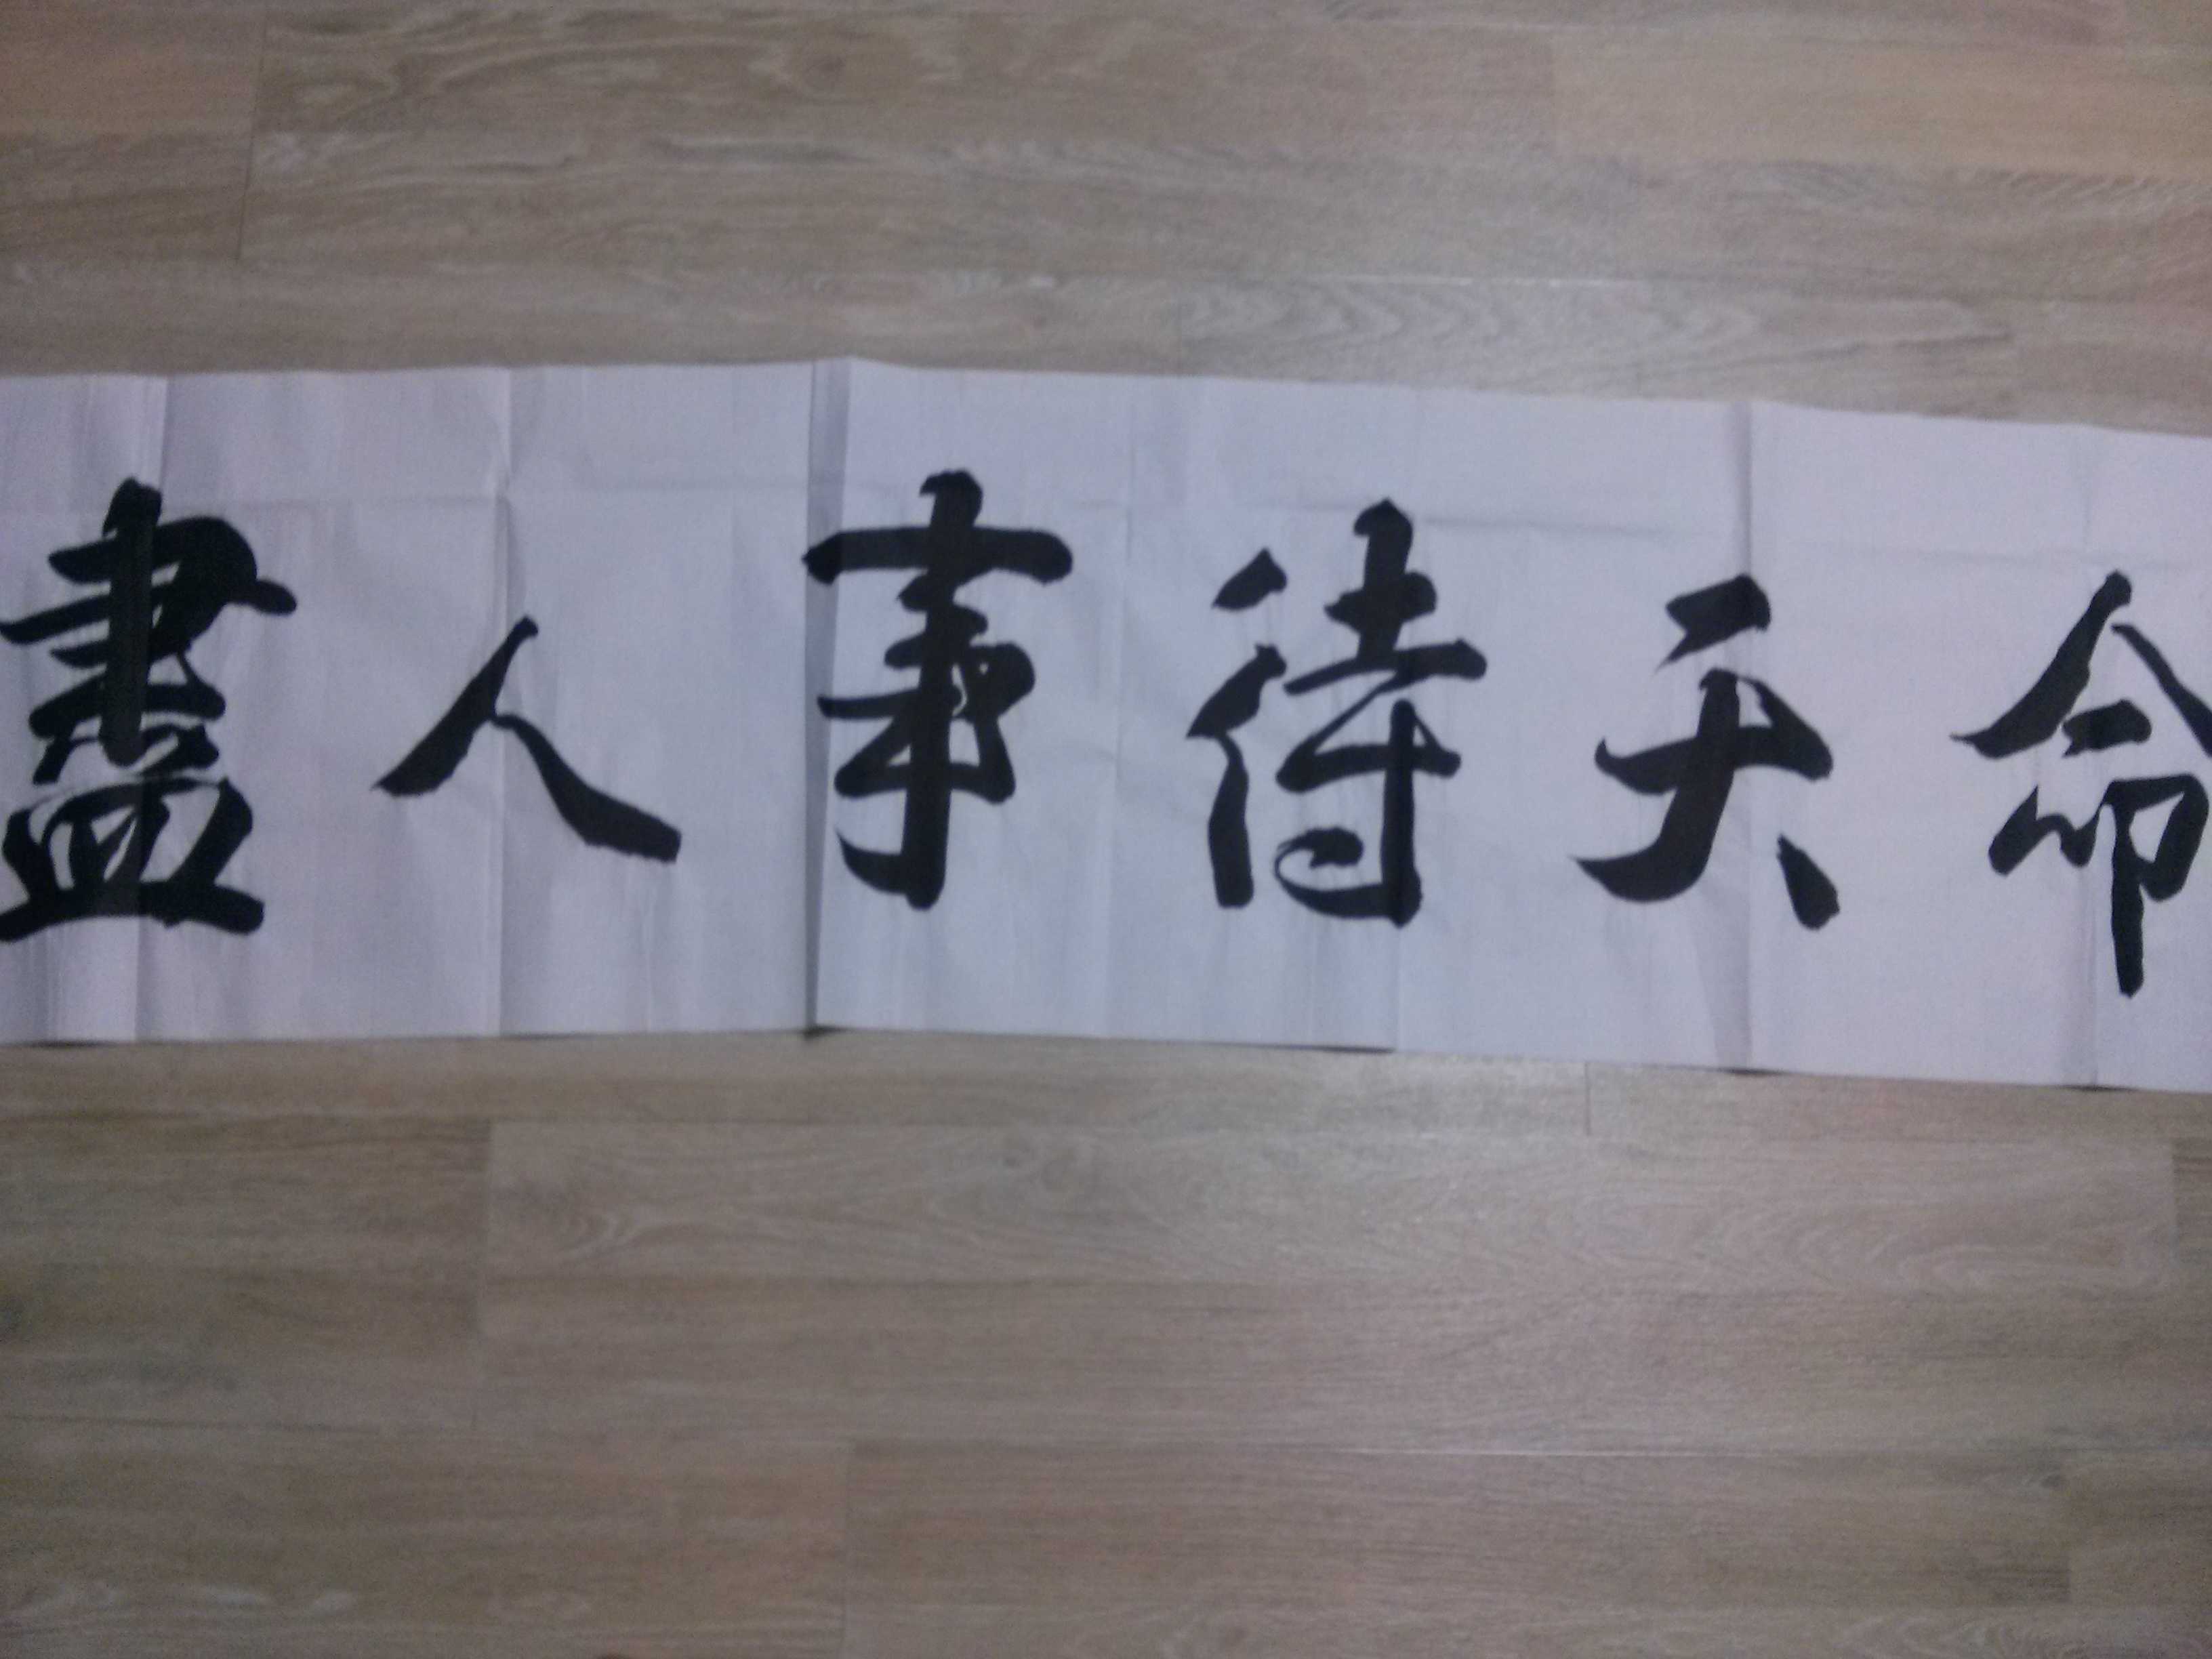 盡人事待天命